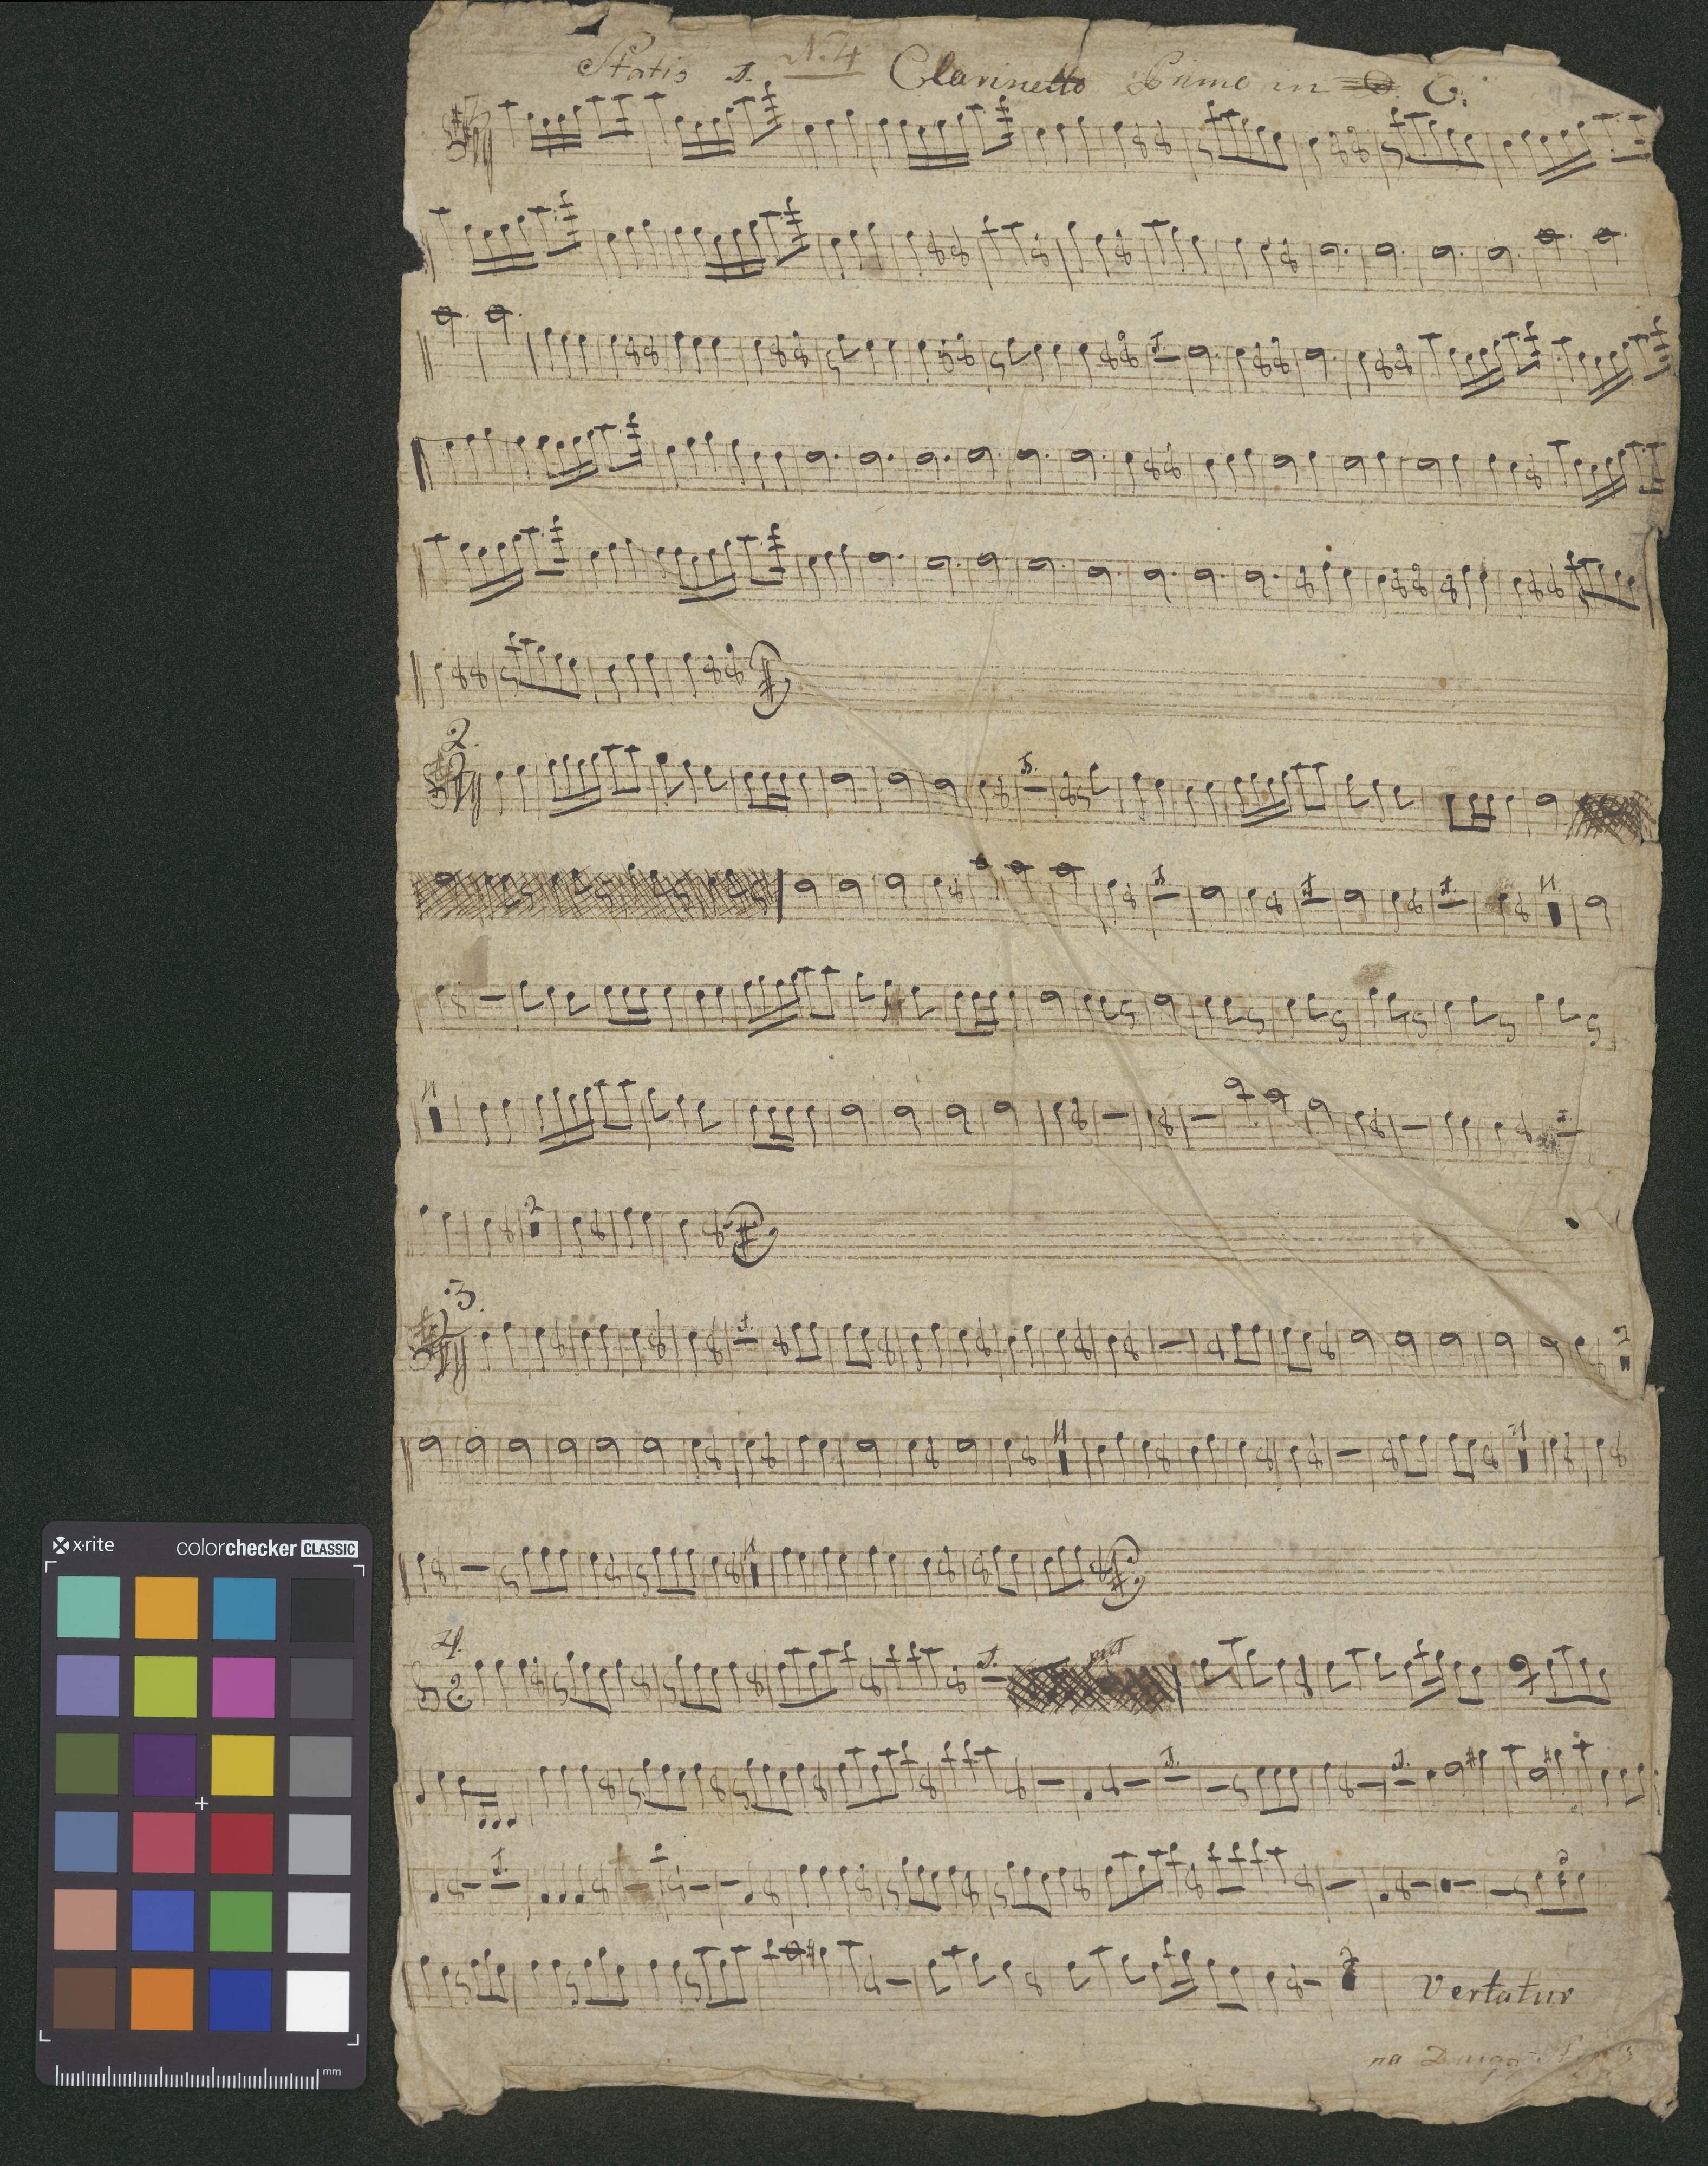 Statio 1. No. 4 Clarinetto Primo in D. C.
2.
3.
4.
Vertatur
na Drugą
x·rite colorchecker CLASSIC
mm